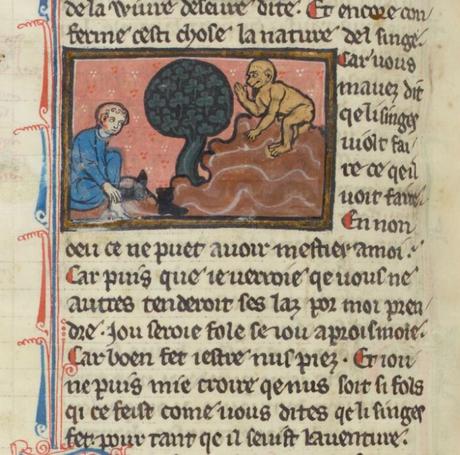 de la wiure deseure dite. Et encore con
ferme cesti chose la nature del singe.
Car vous
mauez dit
qe li singes
wolt fai
re ce qeil
voit faire
En non
deu ce ne puet auoir mestier a moi.
Car puis que ie verroie qe vous ne
autres tenderoit ses laz por moi pren
dre. Iou seroie fole se iou aprois moie.
Car boen fet iestre nus piez. Et iou
ne puis mie croire qe nus soit si fols
qi ce feist come vous dites qe li singes
fet. pour tant qe il seuist lauenture.